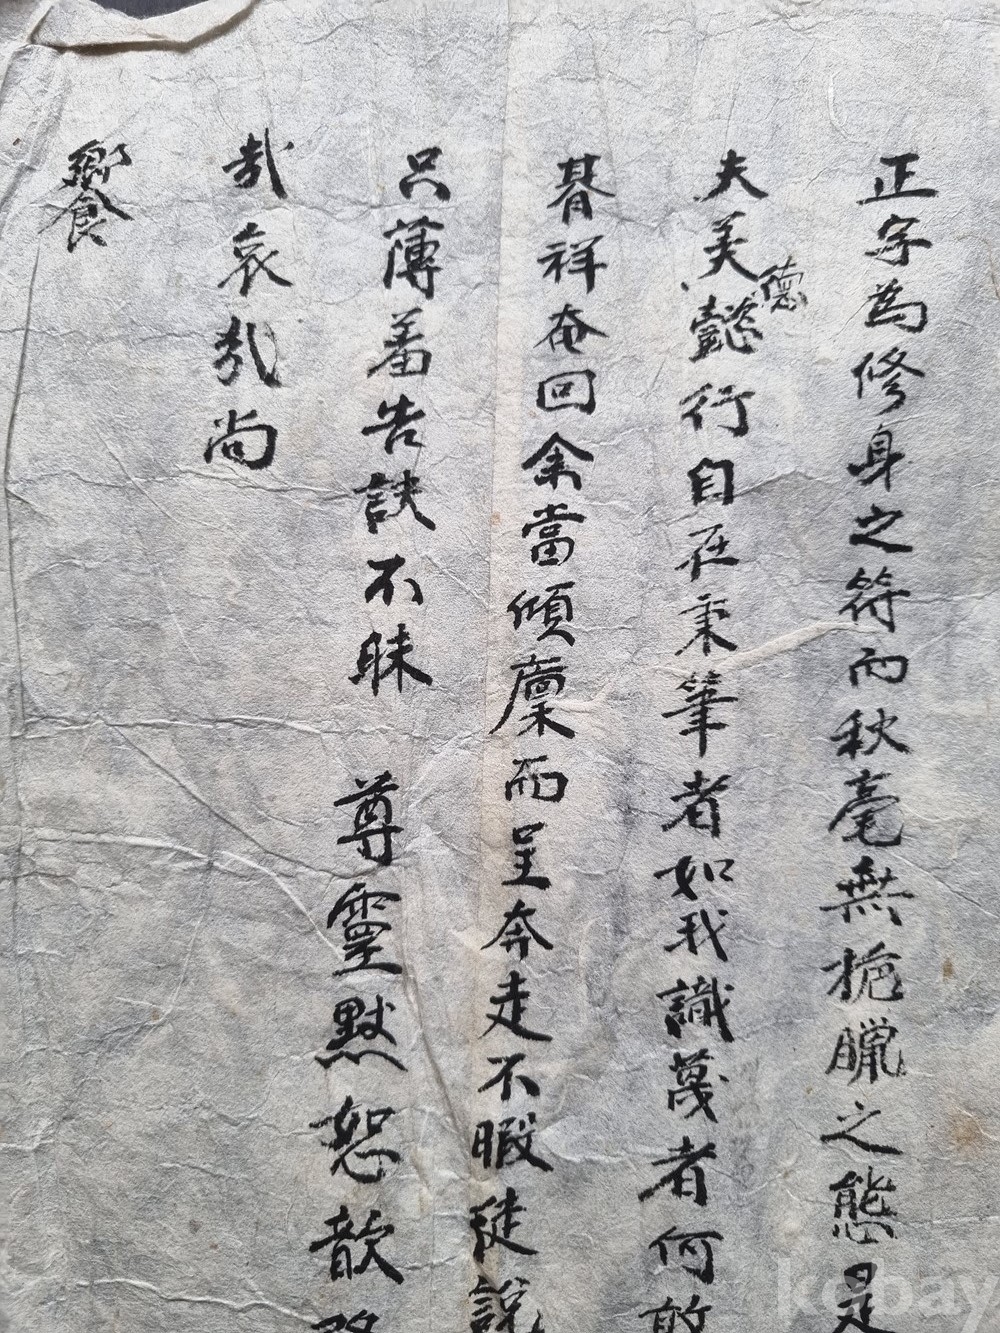 正字爲修身之符而秋毫無抱臘之態是
夫美德懿行自在秉筆者如我識蔑者何敢
朞祥奄回余當傾廩而呈奔走不暇徒說
只薄羞告訣不昧 尊靈默恕歆
哉哀哉尚
饗
kobay